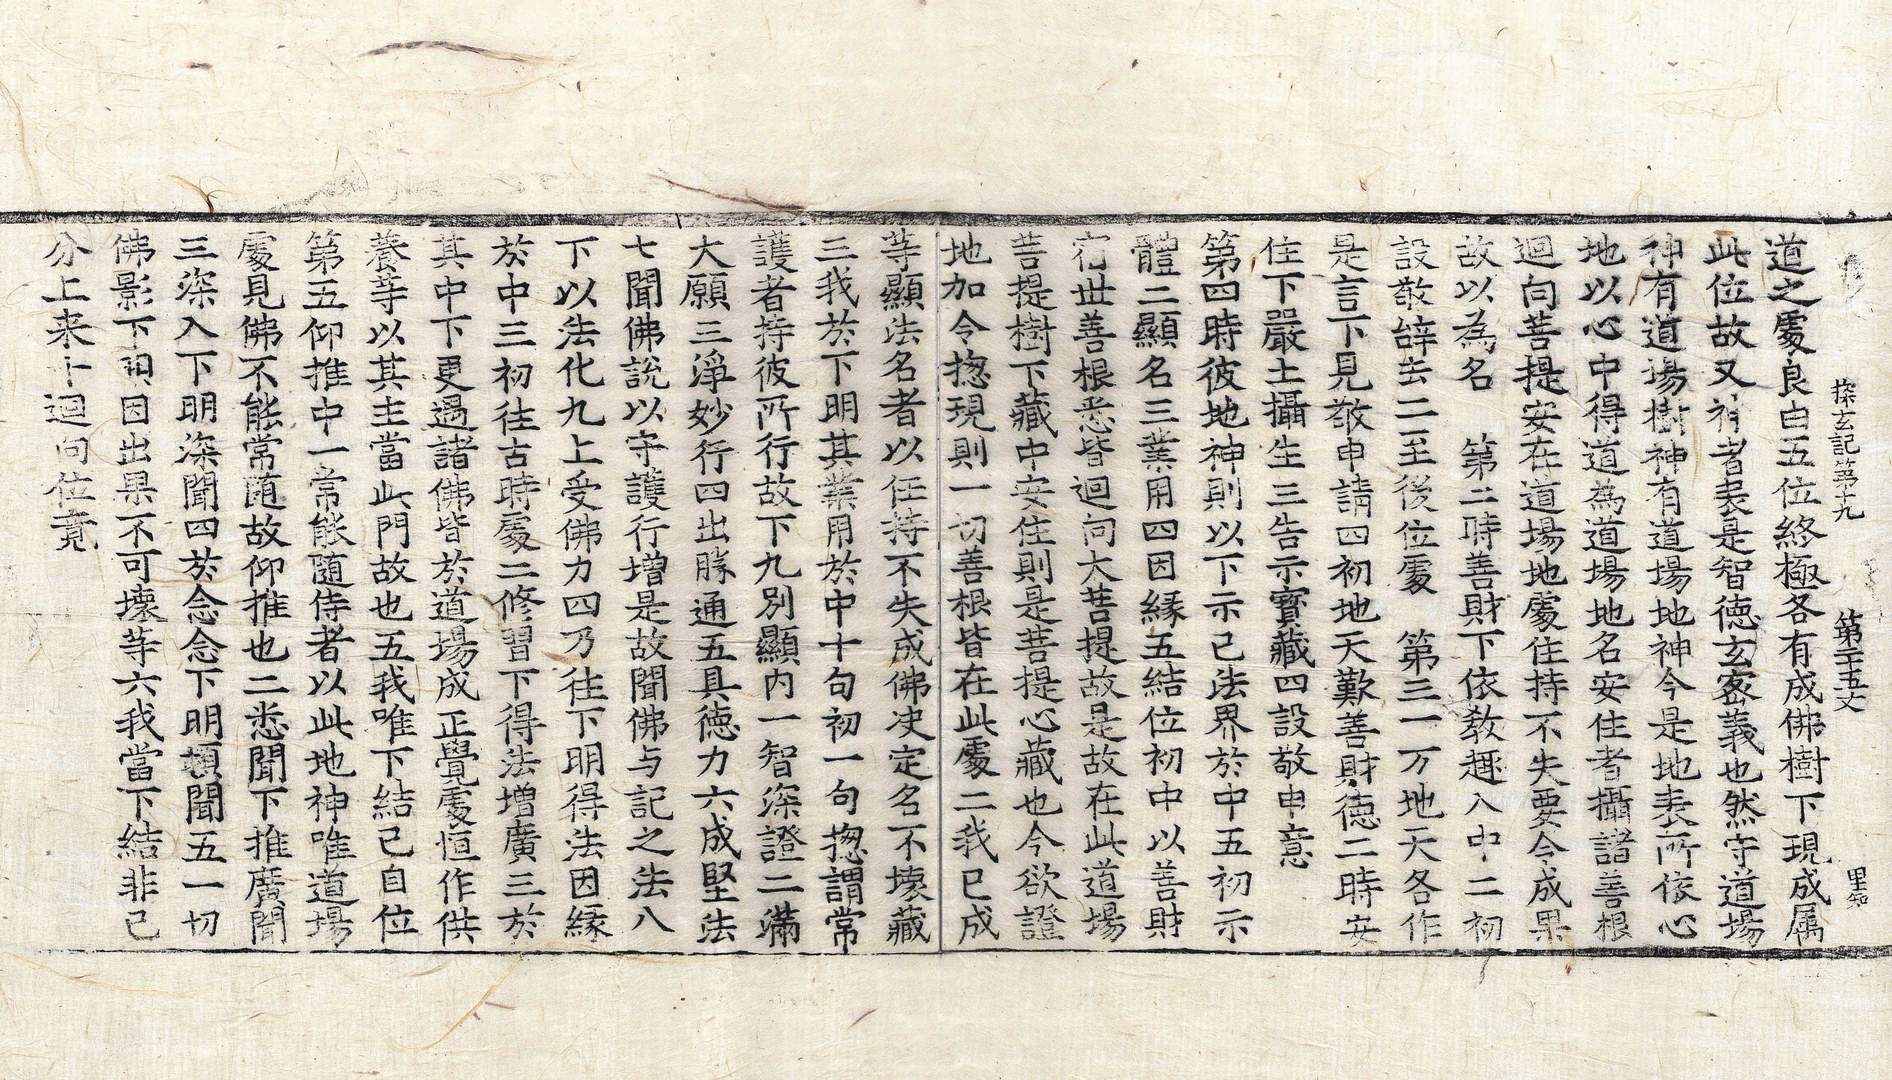 探玄記第十九 第二十五丈 里知
道之處良由五位終極各有成佛樹下現成属
此位故又初者表是智德玄宻義也然守道場
神有道場樹神有道場地神今是地表所依心
地以心中得道為道場地名安住者攝諸善根
迴向菩提安在道場地處住持不失要令成果
故以為名 第二時善財下依教趣入中二初
設敬辞去二至後位處 第三一万地天各作
是言下見敬申請四初地天歎善財徳二時安
住下嚴土攝生三告示寳藏四設敬申意
第四時彼地神則以下示己法界於中五初示
體二顯名三業用四因縁五結位初中以善財
宿世善根悉皆迴向大菩提故是故在此道場
菩提樹下藏中安住則是菩提心藏也今欲證
地加令揔現則一切善根皆在此處二我已成
等顯法名者以任持不失成佛决定名不壊藏
三我於下明其業用於中十句初一句揔謂常
護者持彼所行故下九別顯内一智深證二滿
大願三淨妙行四出勝通五具徳力六成堅法
七聞佛說以守護行增是故聞佛与記之法八
下以法化九上受佛力四乃往下明得法因縁
於中三初往古時處二修習下得法增廣三於
其中下更遇諸佛皆於道場成正覺處恒作供
養等以其主當此門故也五我唯下結己自位
第五仰推中一常能隨侍者以此地神唯道場
處見佛不能常随故仰推也二悉聞下推廣聞
三深入下明深聞四於念念下明頓聞五一切
佛影下明因出果不可壊等六我當下結非己
分上来十迴向位竟